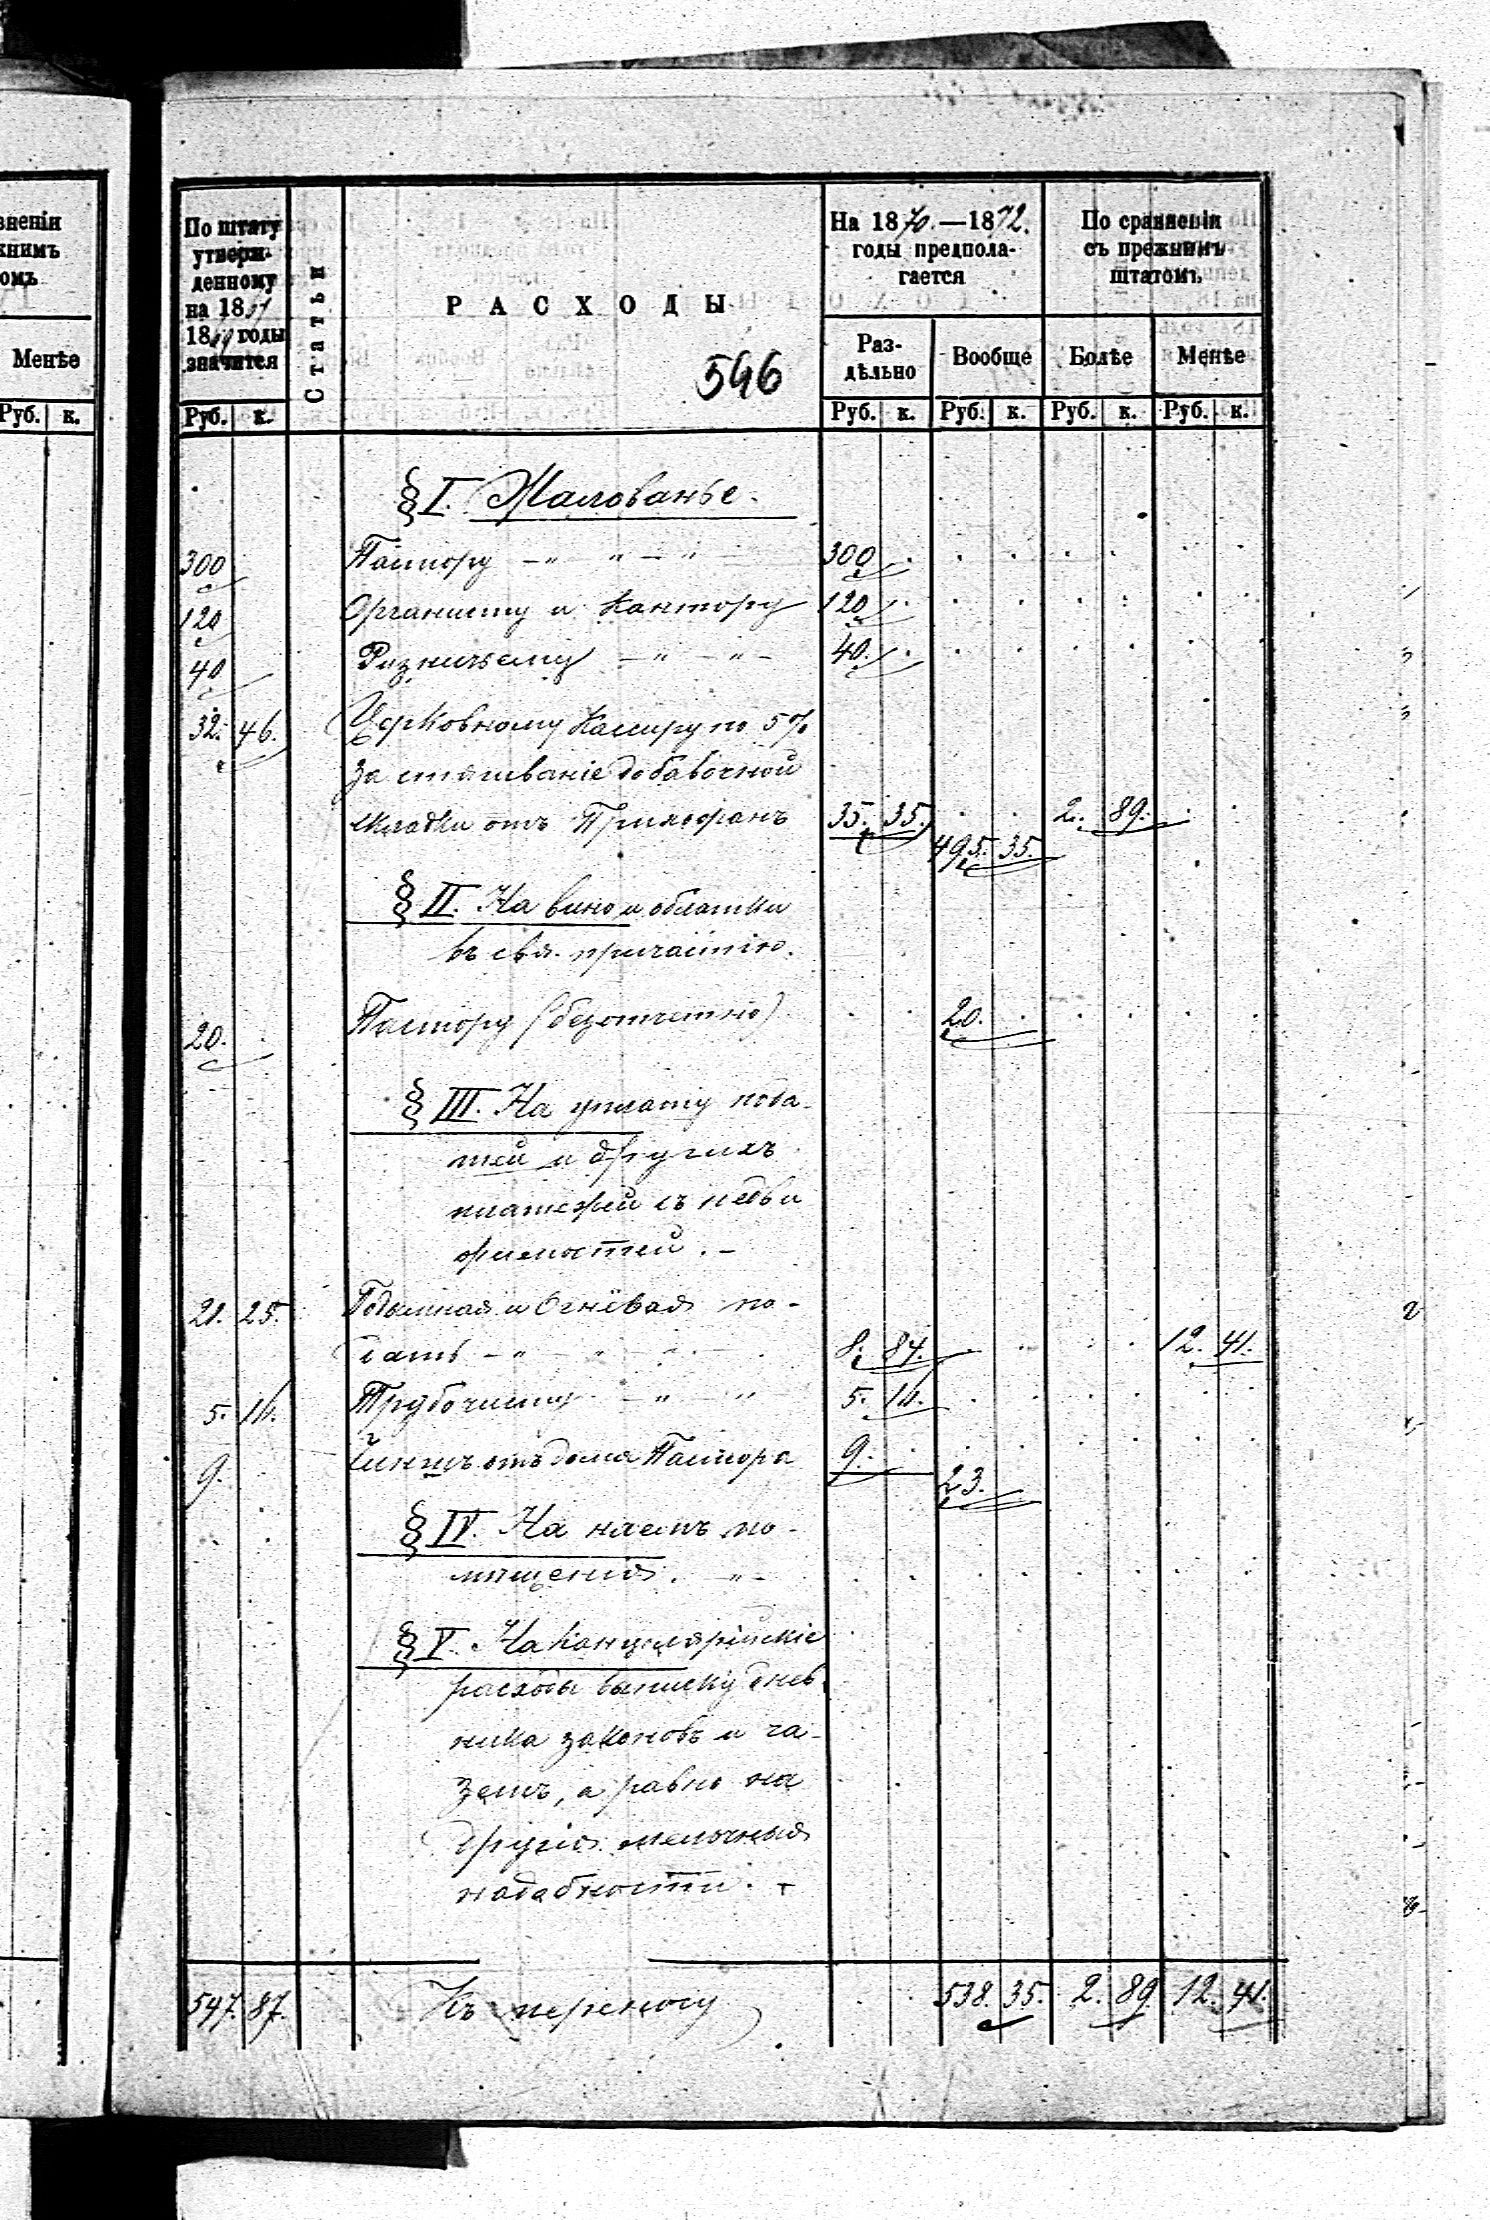 вненіи
жнимъ
омъ
Менѣе
Руб. к.
По штату
утверж-
денному
на 18
18 годы
значится
Руб. к.
Статьи
РАСХОДЫ
546
На 1870.—1872.
годы предпола-
гается
Раз-
дѣльно
Вообще
Руб. к. Руб. к.
По сравненіи
съ прежнимъ
штатомъ.
Болѣе Менѣе
Руб. к. Руб. к.
§ I. Жалованье.
300 Пастору - " - " - " 300
120 Органисту и Кантору 120
40 Ризничему - " - " - 40.
32. 46. Церковному Кассиру по 5%
за стягиваніе добавочной
складки отъ Прихожанъ 35. 35. 2. 89.
495. 35.
§ II. На вино и облатки
къ свя. причастію.
20. Пастору (безотчетно) 20.
§ III. На уплату пода-
тей и другихъ
платежей съ недви
жимостей. -
21. 25. Подымная и Огнёвая по-
дать - " - " - 8. 84. 12. 41.
5. 16. Трубочисту - " - " 5. 16.
9. Чиншъ отъ дома Пастора 9.
23.
§ IV. На наемъ по-
мѣщенія. - " -
§ V. На канцелярійскіе
расходы выписку днев-
ника законовъ и га-
зетъ, а равно на
другія мелочныя
надобности. -
547. 87. Къ переносу 538. 35. 2. 89. 12. 41.